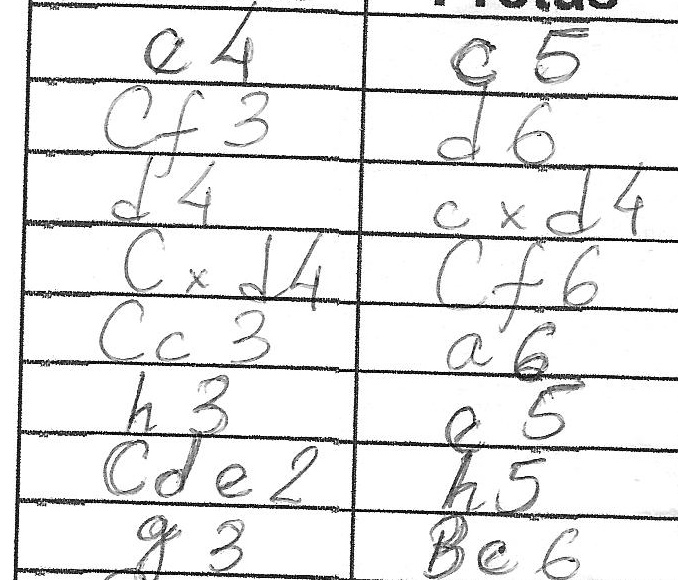 e4 c5
Cf3 d6
d4 cxd4
Cxd4 Cf6
Cc3 a6
h3 e5
Cde2 h5
g3 Be6